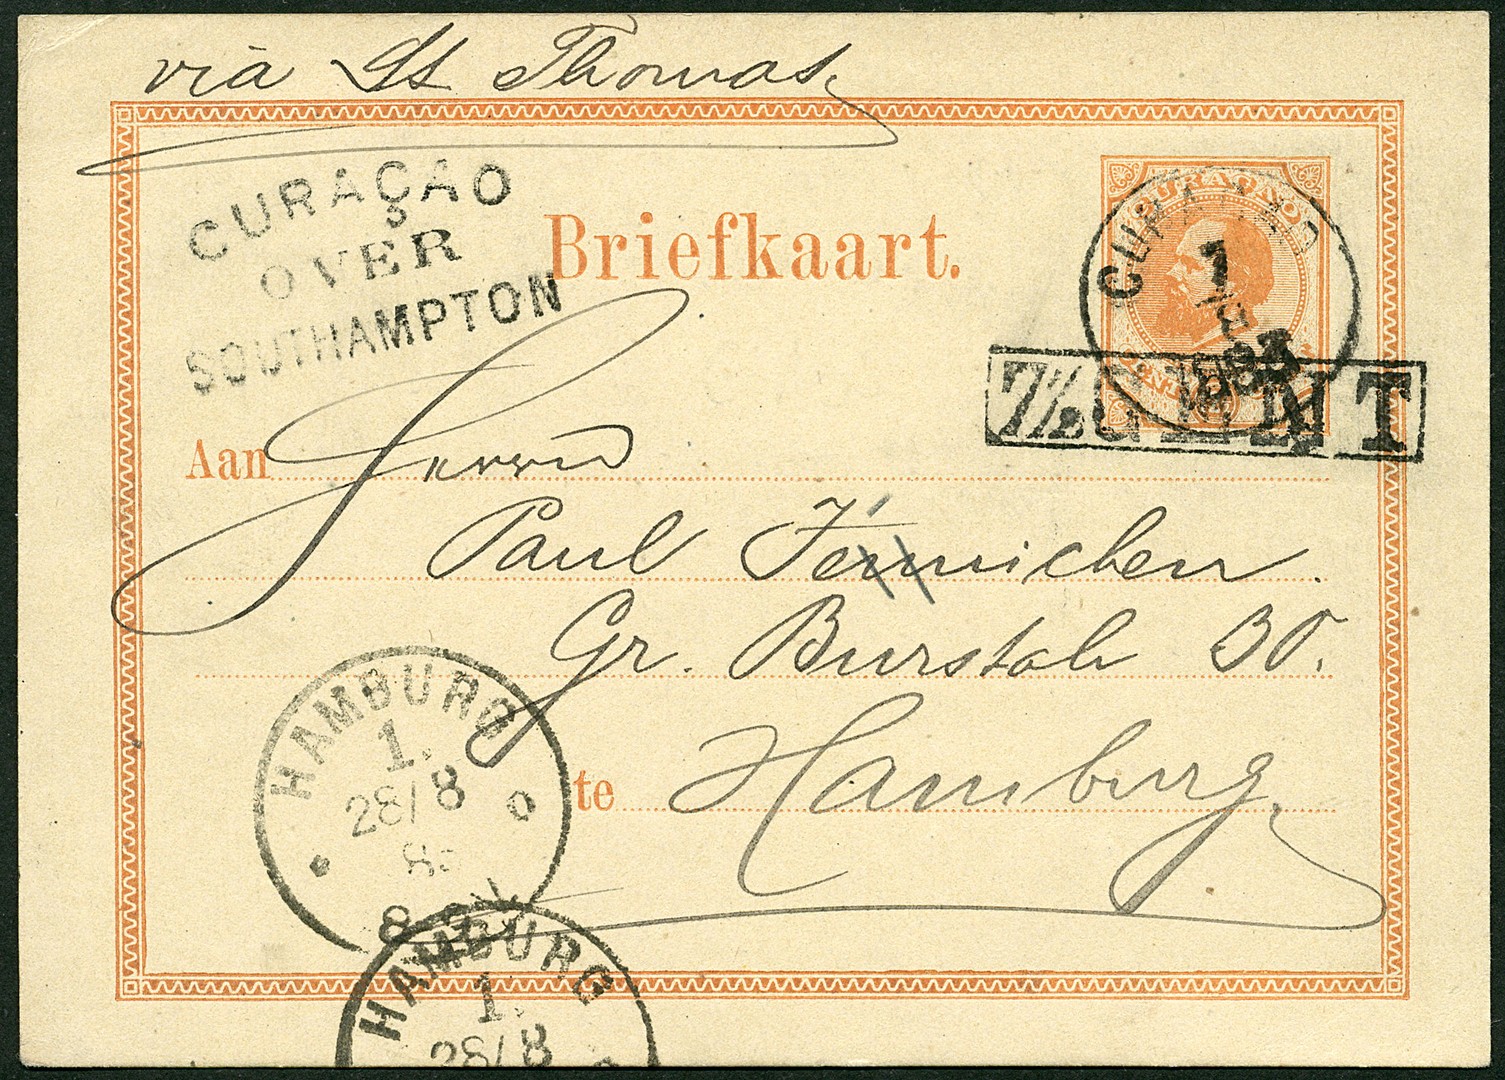 via St Thomas
CURAÇAO
OVER
SOUTHAMPTON
Briefkaart.
CURAÇAO
CURAÇAO
7
1883
7½ CENT
Aan Herrn
Paul Jennichen.
Gr. Burstah 30.
te Hamburg.
HAMBURG
1.
28/8
8
HAMBURG
1.
28/8